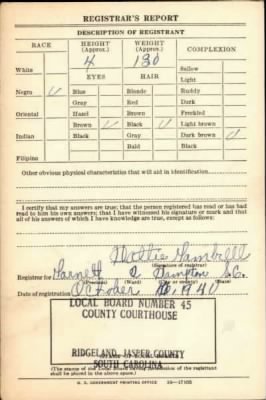 REGISTRAR'S REPORT
DESCRIPTION OF REGISTRANT
RACE HEIGHT (Approx.) WEIGHT (Approx.) COMPLEXION
4 130
White Sallow
EYES HAIR Light
Negro Blue Blonde Ruddy
Gray Red Dark
Oriental Hazel Brown Freckled
Brown Black Light brown
Indian Black Gray Dark brown
Bald Black
Filipino
Other obvious physical characteristics that will aid in identification
I certify that my answers are true; that the person registered has read or has had
read to him his own answers; that I have witnessed his signature or mark and that
all of his answers of which I have knowledge are true, except as follows:
(Signature of registrar)
Registrar for Garnett Hampton S.C.
(Precinct) (Ward) (State)
Date of registration October 1940
LOCAL BOARD NUMBER 45
COUNTY COURTHOUSE
RIDGELAND, JASPER COUNTY
SOUTH CAROLINA
(The stamp of the Local Board having jurisdiction of the registrant
shall be placed in the above space.)
U. S. GOVERNMENT PRINTING OFFICE 16-17105